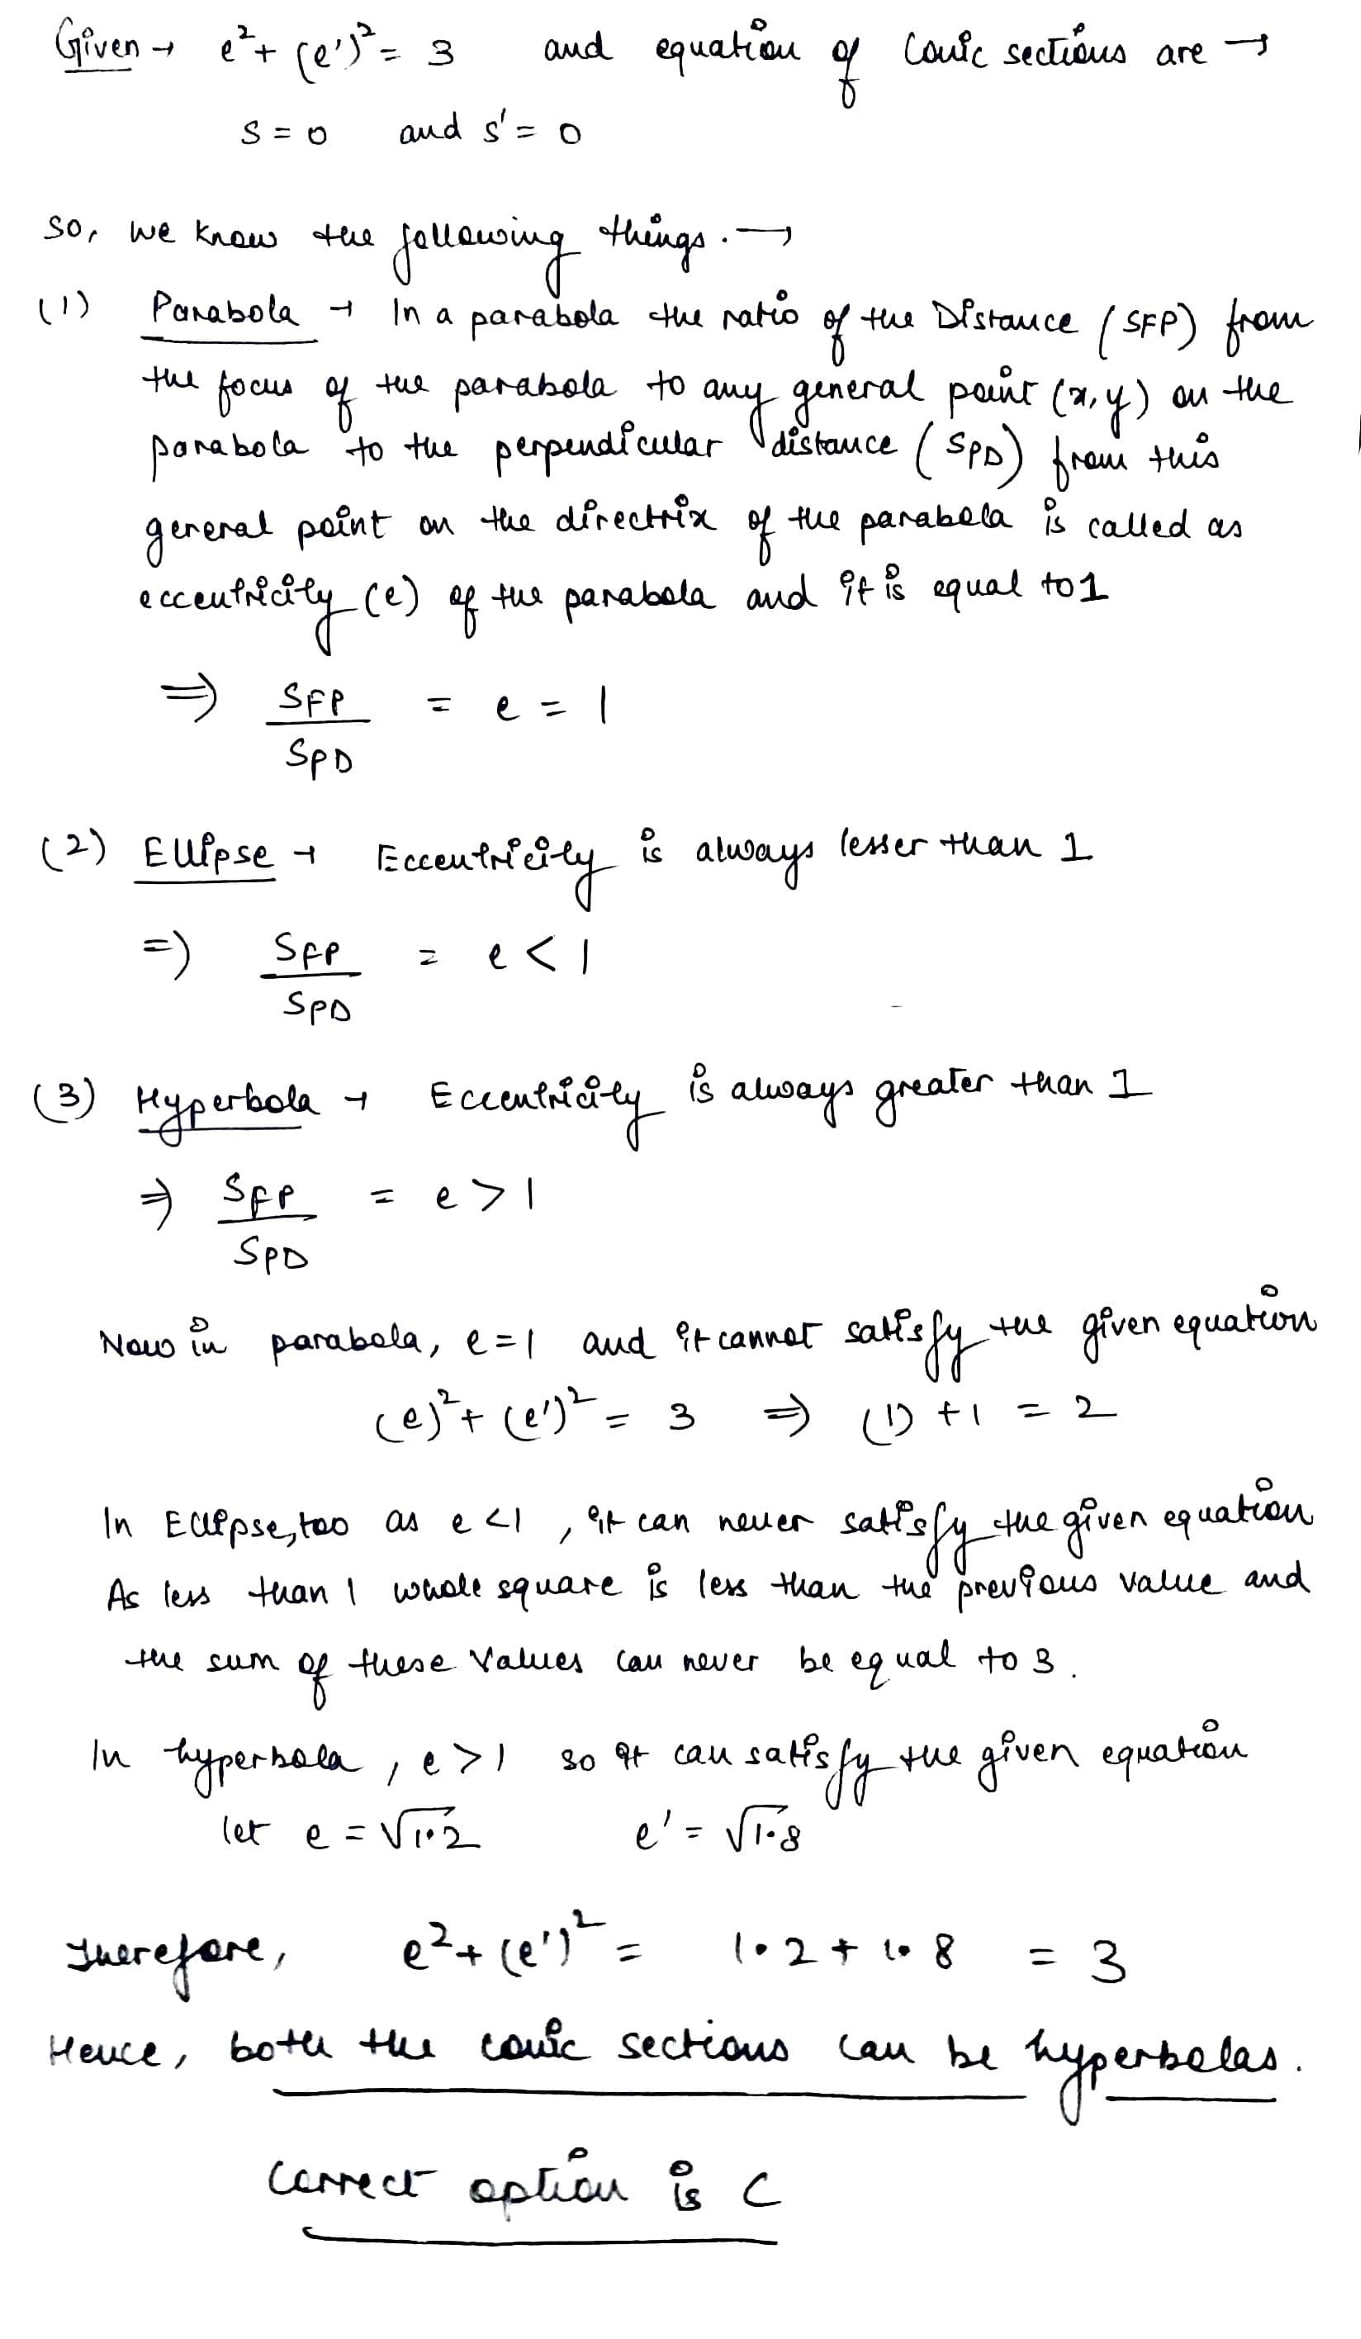 Given → e²+ (e')² = 3 and equation of conic sections are →
S = 0 and s' = 0
So, we know the following things. →
(1) Parabola → In a parabola the ratio of the Distance (SFP) from
the focus of the parabola to any general point (x,y) on the
parabola to the perpendicular distance (SPD) from this
general point on the directrix of the parabola is called as
eccentricity (e) of the parabola and it is equal to 1
⇒ SFP/SPD = e = 1
(2) Ellipse → Eccentricity is always lesser than 1
⇒ SFP/SPD = e < 1
(3) Hyperbola → Eccentricity is always greater than 1
⇒ SFP/SPD = e > 1
Now in parabola, e = 1 and it cannot satisfy the given equation
(e)² + (e')² = 3 ⇒ (1) + 1 = 2
In Ellipse, too as e < 1, it can never satisfy the given equation
As less than 1 whole square is less than the previous value and
the sum of these values can never be equal to 3.
In hyperbola, e > 1 so it can satisfy the given equation
let e = √1.2 e' = √1.8
Therefore, e² + (e')² = 1.2 + 1.8 = 3
Hence, both the conic sections can be hyperbolas.
Correct option is C